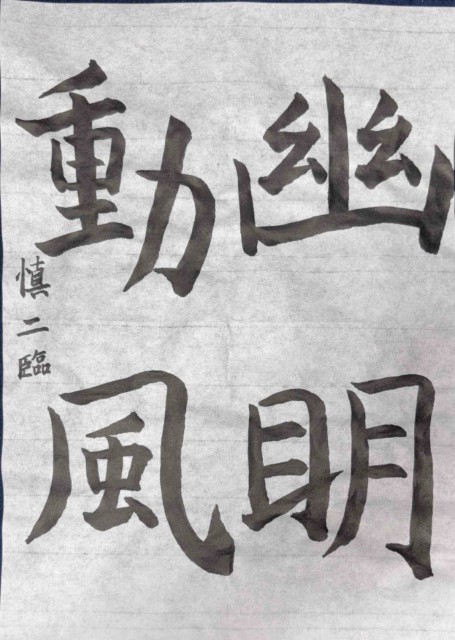 幽明
動風
慎二臨